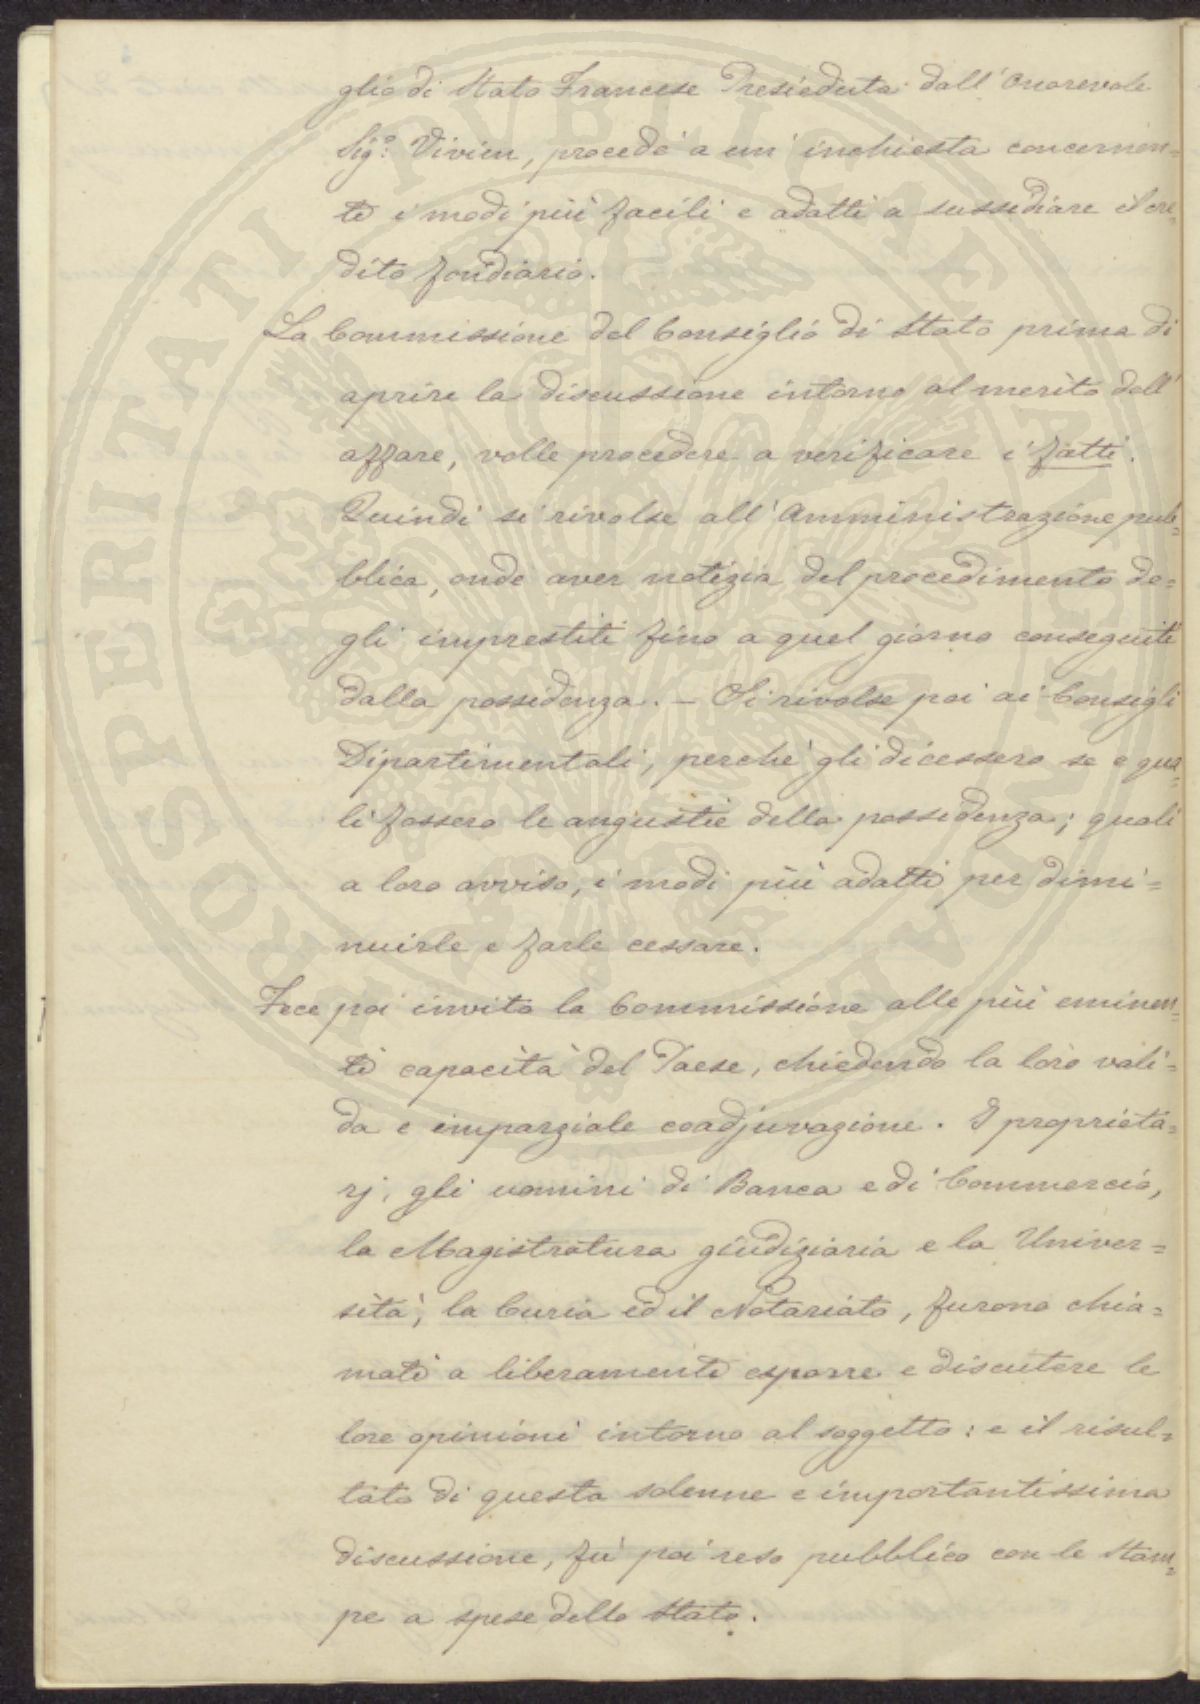 glio di Stato Francese Presieduta dall'Onorevole
Sig.º Vivien, procedé a un' inchiesta concernen=
te i modi più facili e adatti a sussidiare il cre=
dito fondiario.
La Commissione del Consiglio di Stato prima di
aprire la discussione intorno al merito dell'
affare, volle procedere a verificare i fatti.
Quindi si rivolse all'Amministrazione pub=
blica, onde aver notizia del procedimento de=
gli imprestiti fino a quel giorno conseguiti
dalla possidenza. – Si rivolse poi ai Consigli
Dipartimentali, perché gli dicessero se e qua=
li fossero le angustie della possidenza; quali
a loro avviso, i modi più adatti per dimi=
nuirle e farle cessare.
Fece poi invito la Commissione alle più eminen=
ti capacità del Paese, chiedendo la loro vali=
da e imparziale coadjuvazione. I proprieta=
rj, gli uomini di Banca e di Commercio,
la Magistratura giudiziaria e la Univer=
sità, la Curia ed il Notariato, furono chia=
mati a liberamente esporre e discutere le
loro opinioni intorno al soggetto: e il risul=
tato di questa solenne e importantissima
discussione, fu poi reso pubblico con le Stam=
pe a spese dello Stato.
PROSPERITATI PUBLICAE AUGENDAE